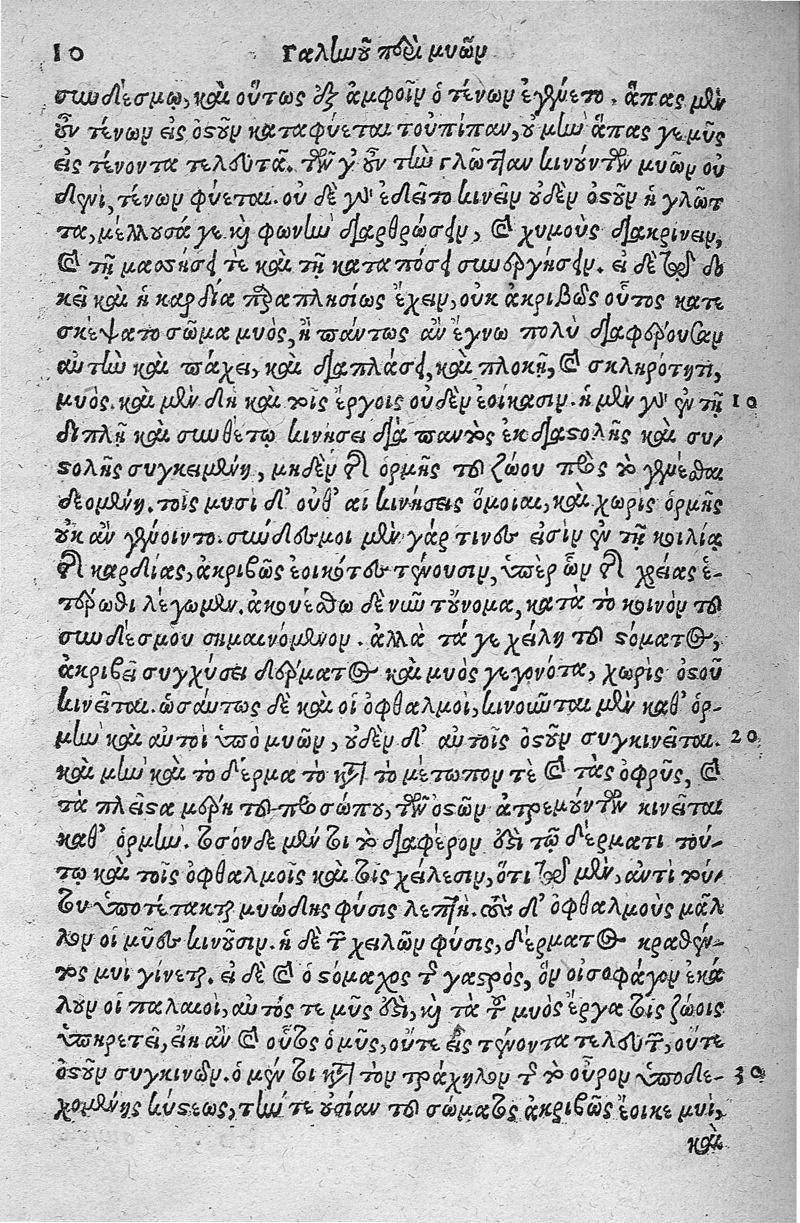 10 Γαλίωοῦ περὶ μυῶν
συνδέσμῳ, καὶ οὕτως ἐξ ἀμφοῖν ὁ τένων ἐγένετο. ἅπας μὲν
οὖν τένων εἰς ὀστοῦν καταφύεται τοὐπίπαν, οὐ μὴν ἅπας γε μῦς
εἰς τένοντα τελευτᾷ. τῶν γ' οὖν τὴν γλῶτταν κινούντων μυῶν οὐ
δενὶ, τένων φύεται. οὐ δὲ γὰρ ἐδεῖτο κινεῖν οὐδὲν ὀστοῦν ἡ γλῶτ
τα, μέλλουσά γε καὶ φωνὴν διαρθρώσειν, καὶ χυμοὺς διακρίνειν,
καὶ τῇ μασήσει τε καὶ τῇ καταπόσει συνεργήσειν. εἰ δέ τῳ δο
κεῖ καὶ ἡ καρδία παραπλησίως ἔχειν, οὐκ ἀκριβῶς οὗτος κατε
σκέψατο σῶμα μυὸς, ἢ πάντως ἂν ἔγνω πολὺ διαφέρουσαν
αὐτὴν καὶ πάχει, καὶ διαπλάσει, καὶ πλοκῇ, καὶ σκληρότητι,
μυός. καὶ μὲν δὴ καὶ τοῖς ἔργοις οὐδὲν ἐοίκασιν. ἡ μὲν γὰρ ἐν τῇ 10
διπλῇ καὶ συνθέτῳ κινήσει διὰ παντὸς ἐκ διαστολῆς καὶ συ-
στολῆς συγκειμένη, μηδὲν τῆς ὁρμῆς τοῦ ζώου πρὸς τὸ γενέσθαι
δεομένη. τοῖς μυσὶ δ' οὔθ' αἱ κινήσεις ὅμοιαι, καὶ χωρὶς ὁρμῆς
οὐκ ἂν γένοιντο. σύνδεσμοι μὲν γάρ τινες εἰσὶν ἐν τῇ κοιλίᾳ
τῆς καρδίας, ἀκριβῶς ἐοικότες τένουσιν, ὑπὲρ ὧν τῆς χρείας ἑ-
τέρωθι λέγωμεν. ἀκουέσθω δὲ νῦν τοὔνομα, κατὰ τὸ κοινὸν τοῦ
συνδέσμου σημαινόμενον. ἀλλὰ τά γε χείλη τοῦ στόματος,
ἀκριβεῖ συγχύσει δέρματος καὶ μυὸς γεγονότα, χωρὶς ὀστοῦ
κινεῖται. ὡσάυτως δὲ καὶ οἱ ὀφθαλμοὶ, κινοῦνται μὲν καθ' ὁρ-
μὴν καὶ αὐτοὶ ὑπὸ μυῶν, οὐδὲν δ' αὐτοῖς ὀστοῦν συγκινεῖται. 20
καὶ μὴν καὶ τὸ δέρμα τὸ κατὰ τὸ μέτωπον τὲ καὶ τὰς ὀφρῦς, καὶ
τὰ πλεῖστα μέρη τοῦ προσώπου, τῶν ὀστῶν ἀτρεμούντων κινεῖται
καθ' ὁρμήν. τοσόνδε μέν τοι τὸ διαφέρον ἐστὶ τῷ δέρματι τού-
τῳ καὶ τοῖς ὀφθαλμοῖς καὶ τοῖς χείλεσιν, ὅτι τῷ μὲν, ἀντὶ τού-
του ὑποτέτακται μυώδης φύσις λεπτή. τοὺς δ' ὀφθαλμοὺς μᾶλ
λον οἱ μῦες κινοῦσιν. ἡ δὲ τῶν χειλῶν φύσις, δέρματος κραθέν-
τος μυὶ γίνεται. εἰ δὲ καὶ ὁ στόμαχος τῆς γαστρὸς, ὃν οἰσοφάγον ἐκά
λουν οἱ παλαιοὶ, αὐτός τε μῦς ἐστὶ, καὶ τὰ τοῦ μυὸς ἔργα τοῖς ζώοις
ὑπηρετεῖ, εἴη ἂν καὶ οὗτος ὁ μῦς, οὔτε εἰς τένοντα τελευτῶν, οὔτε
ὀστοῦν συγκινῶν. ὁ μέν τοι κατὰ τὸν τράχηλον τῆς τὸ οὖρον ὑποδε- 30
χομένης κύστεως, τήν τε οὐσίαν τοῦ σώματος ἀκριβῶς ἔοικε μυὶ,
καὶ